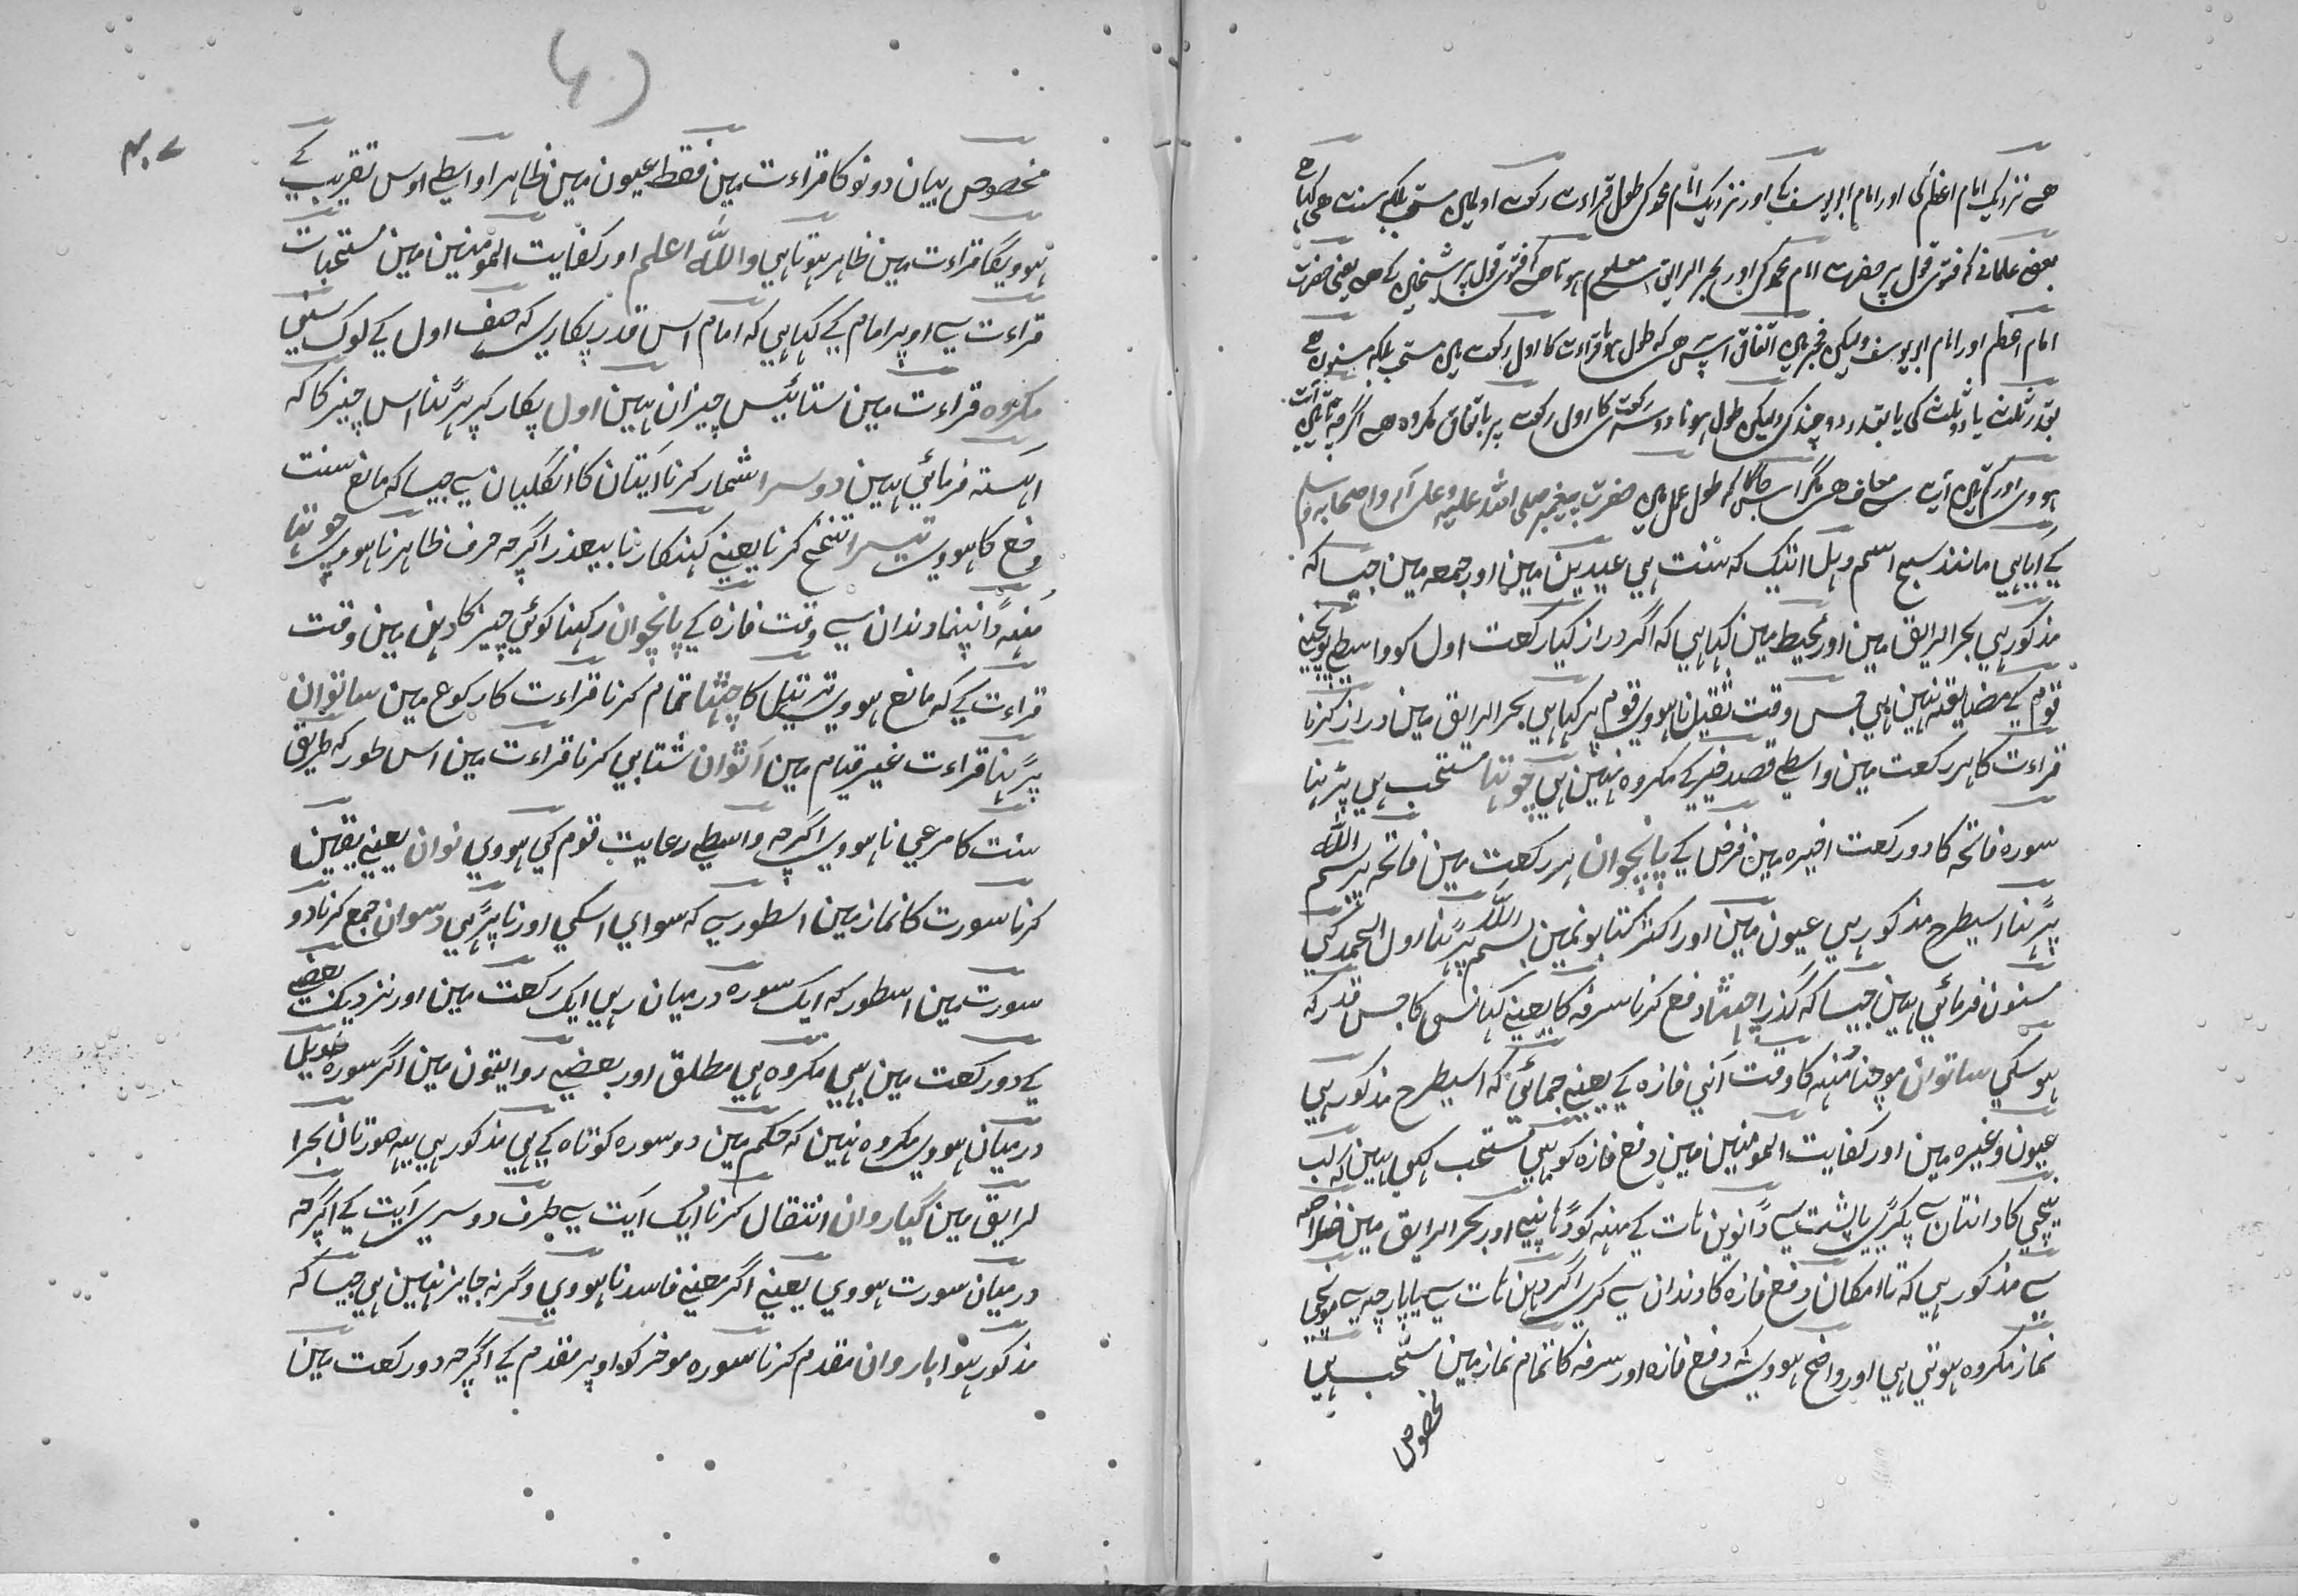 ھے نزدیک امام اعظم کی اور امام ابو یوسف کے اور نزدیک امام محمد کی طول قراءت رکعت اولی میں مستحب بلکہ سنت ھی کہا ھے
بعض علمانے کہ فتوی قول پر حضرت امام محمد کی اور بحر الرایق سے معلوم ہوتا ھی کہ فتوی قول پر شیخین کے ھی یعنی حضرت
امام اعظم اور امام ابو یوسف ولیکن فجر میں اتفاق ھی کہ طول قراءت کا اول رکعت میں مستحب بلکہ مسنون ھے
بقدر ثلث یا دو ثلث کی یا بقدر دو چند کی ولیکن طول ہونا دوسری رکعت کا اول رکعت پر باتفاق مکروہ ھے اگر تین آیت
ہووی اور کم تین آیت سے معاف ھی مگر اس جاگا کہ طول عمل میں حضرت پیغمبر صلی اللہ علیہ وعلی آلہ واصحابہ وسلم
کے آیا ہی مانند سبح اسم وہل اتیک کہ سنت ہی عیدین مین اور جمعہ مین جیسا کہ
مذکور ہی بحر الرایق مین اور محیط مین کہا ہی کہ اگر دراز کیا رکعت اول کو واسطے پہونچنے
قوم کے مضایقہ نہین ہی جس وقت ثقیل نا ہووی قوم پر کہا ہی بحر الرایق مین دراز کرنا
قراءت کا ہر رکعت مین واسطے قصد خیر کے مکروہ نہین ہی چوتھا مستحب ہی پڑہنا
سورہ فاتحہ کا دو رکعت اخیرہ مین فرض کے پانچوان ہر رکعت مین فاتحہ پر بسم اللہ
پڑہنا اسیطرح مذکور ہی عیون مین اور اکثر کتابونمین بسم اللہ پڑہنا اول الحمد کی
مسنون فرمائی ہین جیسا کہ گذرا چھٹا دفع کرنا سرفہ کا یعنے کہانسی کا جس قدر کہ
ہوسکی ساتوان موچنا مُنہہ کا وقت آنی فازہ کے یعنے جمائی کہ اسیطرح مذکور ہی
عیون وغیرہ مین اور کفایت المومنین مین دفع فازہ کو بہی مستحب لکہی ہین کہ لب
نیچی کا دانتان سے پکڑی یا پشت سے دانوین ہات کے منہہ کو ڈہانپے اور بحر الرایق مین خلاصہ
سے مذکور ہی کہ تا امکان دفع فازہ کا دندان سے کری اگر دہن ہات سے یا پارچہ سے موچی
نماز مکروہ ہوتی ہی اور واضح ہووی کہ دفع فازہ اور سرفہ کا تمام نماز مین مستحب ہی
مخصوص
مخصوص بیان دونو کا قراءت مین فقط عیون مین ظاہرا واسطے اوس تقریب کے
ہوویگا قراءت مین ظاہر ہوتا ہی واللہ اعلم اور کفایت المومنین مین مستحبات
قراءت سے اوپر امام کے کہا ہی کہ امام اس قدر پکاری کہ صف اول کے لوک سنی
مکروہ قراءت مین ستائیس چیزان ہین اول پکار کر پڑہنا اس چیز کا کہ
آہستہ فرمائی ہین دوسرا شمار کرنا آیتان کا انگلیان سے جیسا کہ مانع سنت
وضع کا ہووی تیسرا تنحنح کرنا یعنے کہنکارنا بیعذر اگرچہ حرف ظاہر نا ہووی چوتھا
مُنہہ ڈانپنا دندان سے وقت فازہ کے پانچوان رکہنا کوئی چیز کا دہن مین وقت
قراءت کے کہ مانع ہووی ترتیل کا چھٹا تمام کرنا قراءت کا رکوع مین ساتوان
پڑہنا قراءت غیر قیام مین آٹوان شتابی کرنا قراءت مین اس طور کہ طریق
سنت کا مرعی نا ہووی اگرچہ واسطے رعایت قوم کی ہووی نوان یعنے یقین
کرنا سورت کا نماز مین اسطور سے کہ سوای اسکی اور نا پڑہی دسوان جمع کرنا دو
سورت مین اسطور کہ ایک سورہ درمیان رہی ایک رکعت مین اور نزدیک بعضے
کے دو رکعت مین بہی مکروہ ہی مطلق اور بعضے روایتون مین اگر سورہ طویل
درمیان ہووی مکروہ نہین کہ حکم مین دو سورہ کوتاہ کے ہی مذکور ہی یہہ صورتان بحرا
لرایق مین گیاروان انتقال کرنا ایک آیت سے طرف دوسری آیت کے اگرچہ
درمیان سورت ہووی یعنے اگر معنے فاسد نا ہووی وگرنہ جایز نہین ہی جیسا کہ
مذکور ہوا باروان مقدم کرنا سورہ موخر کو اوپر مقدم کے اگرچہ دو رکعت مین